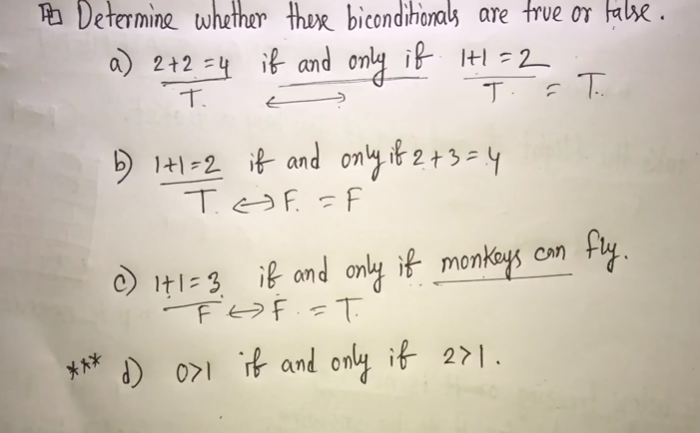 Determine whether these biconditionals are true or false.
a) 2+2=4 if and only if 1+1=2
T. ⟷ T. = T.
b) 1+1=2 if and only if 2+3=4
T. ↔ F. = F
c) 1+1=3 if and only if monkeys can fly.
F ↔ F. = T.
*** d) 0>1 if and only if 2>1.